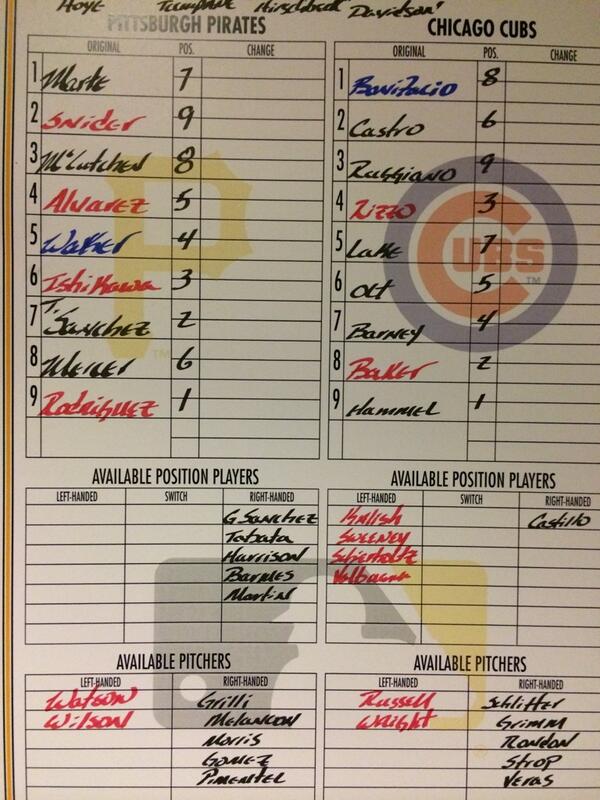 Hoye Tumpane Hirschbeck Davidson
PITTSBURGH PIRATES
ORIGINAL POS. CHANGE
1 Marte 7
2 Snider 9
3 McCutchen 8
4 Alvarez 5
5 Walker 4
6 Ishikawa 3
7 T. Sanchez 2
8 Mercer 6
9 Rodriguez 1
CHICAGO CUBS
ORIGINAL POS. CHANGE
1 Bonifacio 8
2 Castro 6
3 Ruggiano 9
4 Rizzo 3
5 Lake 7
6 Olt 5
7 Barney 4
8 Baker 2
9 Hammel 1
P
TM
CUBS
TM
AVAILABLE POSITION PLAYERS
LEFT-HANDED SWITCH RIGHT-HANDED
G Sanchez
Tabata
Harrison
Barmes
Martin
AVAILABLE POSITION PLAYERS
LEFT-HANDED SWITCH RIGHT-HANDED
Kalish Castillo
Sweeney
Schierholtz
Valbuena
AVAILABLE PITCHERS
LEFT-HANDED RIGHT-HANDED
Watson Grilli
Wilson Melancon
Morris
Gomez
Pimentel
AVAILABLE PITCHERS
LEFT-HANDED RIGHT-HANDED
Russell Schlitter
Wright Grimm
Rondon
Strop
Veras